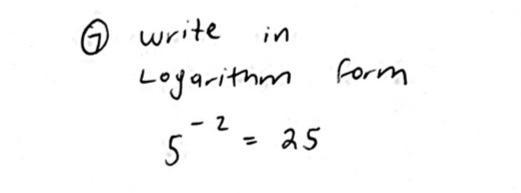 ⑦ write in
Logarithm form
5⁻² = 25